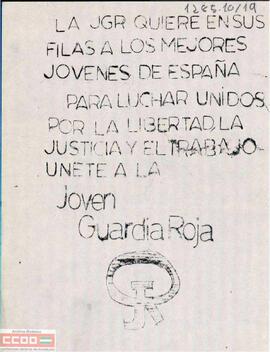 1285.10/19
LA JGR QUIERE EN SUS
FILAS A LOS MEJORES
JOVENES DE ESPAÑA
PARA LUCHAR UNIDOS
POR LA LIBERTAD, LA
JUSTICIA Y EL TRABAJO
UNETE A LA
Joven
Guardia Roja
CCOO